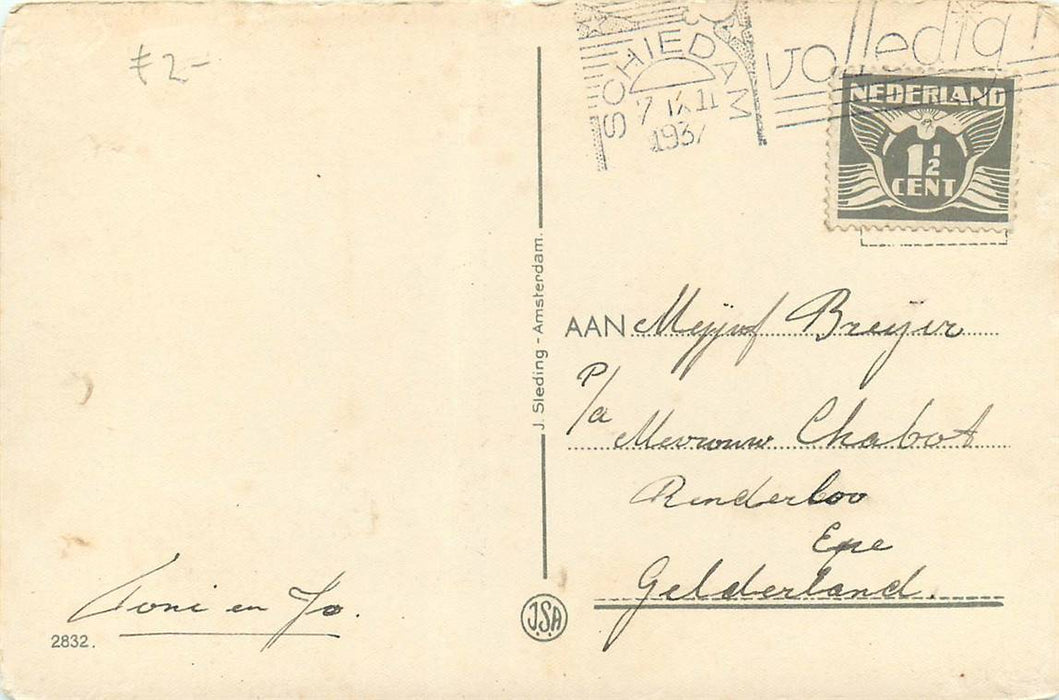 ƒ 2-
SCHIEDAM
7 IX 11
1937
volledig!
NEDERLAND
1 1/2
CENT
J. Sleding - Amsterdam.
AAN Mejjuf Breijer
P/a
Mevrouw Chabot
Renderloo
Epe
Gelderland.
Toni en Jo.
2832.
J.S.A